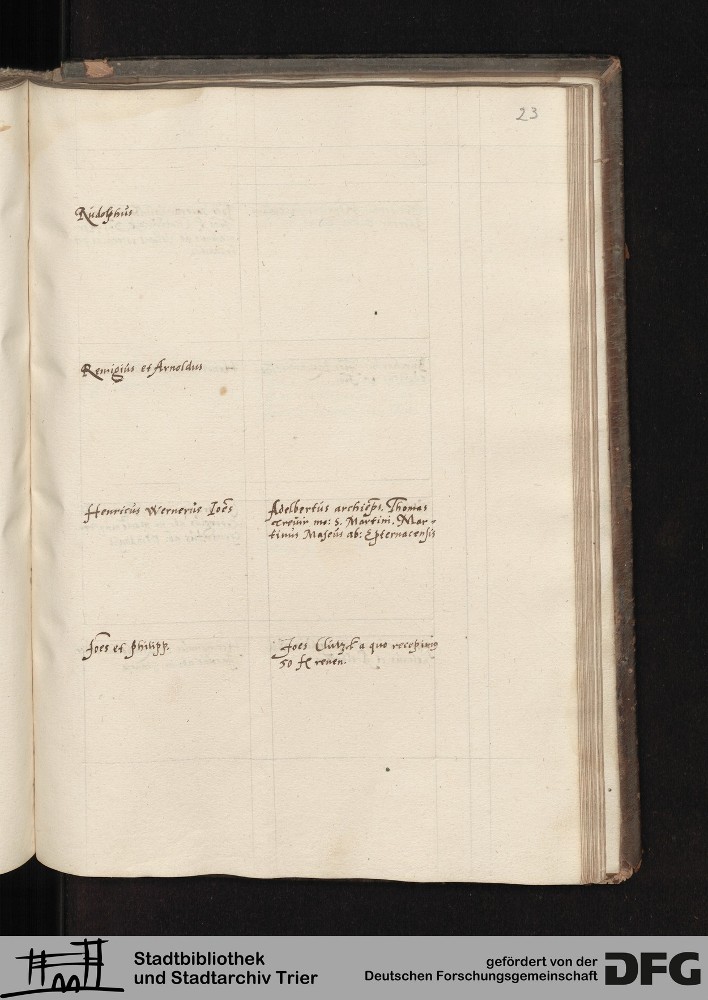 23
Rudolphus
Remigius et Arnoldus
Henricus Wernerus Joēs
Adelbertus archiēps. Thomas
mo: S. Martini. Mar-
tinus Maseus ab: Epternacensis
Joēs et Philipp.
Joes a quo recepimus
50 fl reuen.
Stadtbibliothek
und Stadtarchiv Trier
gefördert von der
Deutschen Forschungsgemeinschaft
DFG